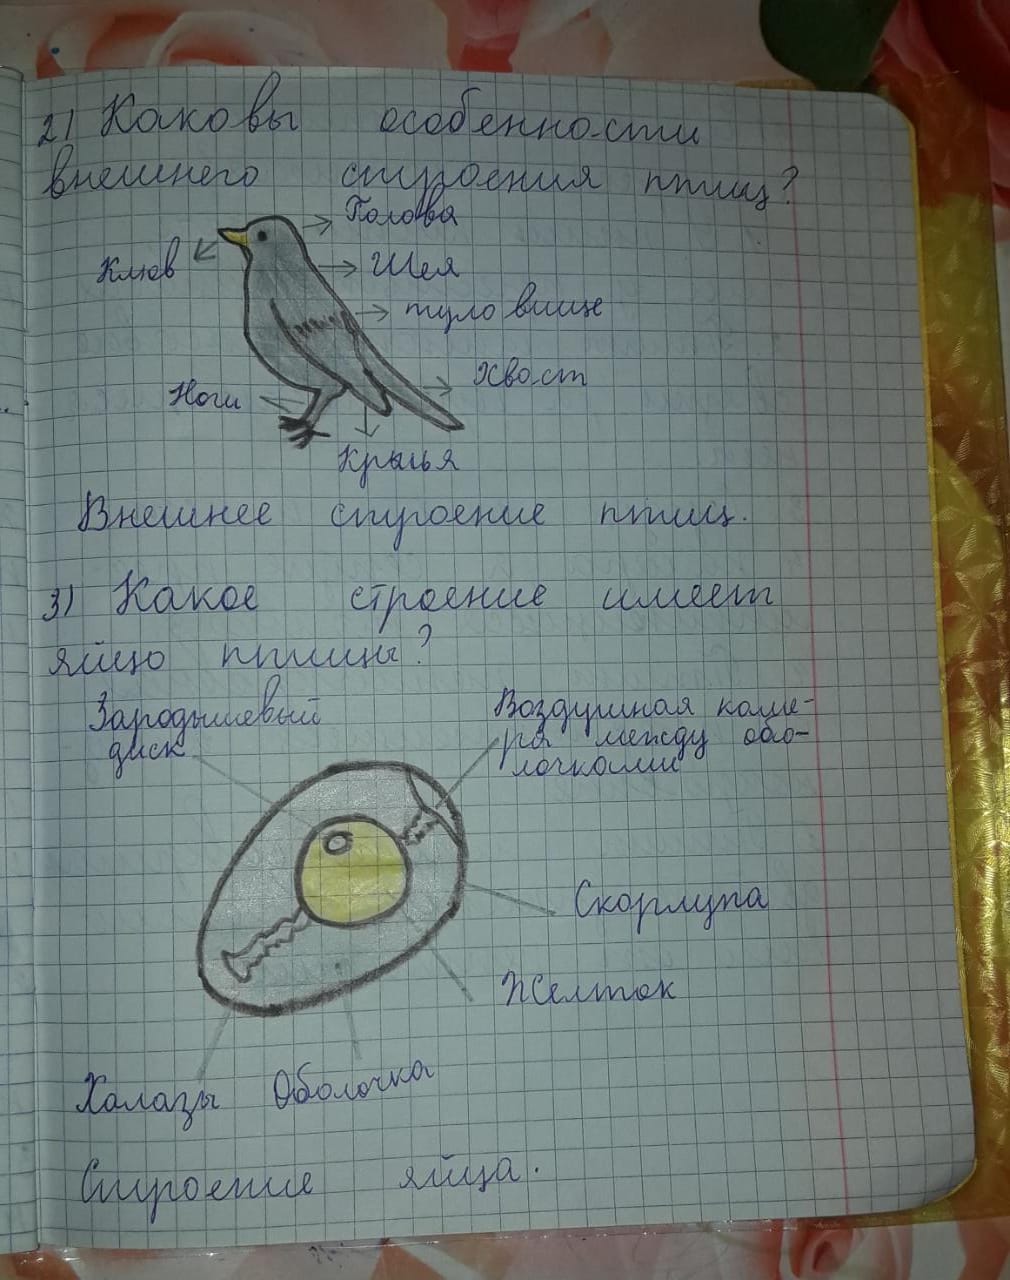 2) Каковы особенности
внешнего строения птиц?
Голова
Клюв
Шея
туловище
Хвост
Ноги
Крылья
Внешнее строение птиц.
3) Какое строение имеет
яйцо птицы?
Зародышевый
диск
Воздушная каме-
ра между обо-
лочками
Скорлупа
Желток
Халазы Оболочка
Строение яйца.